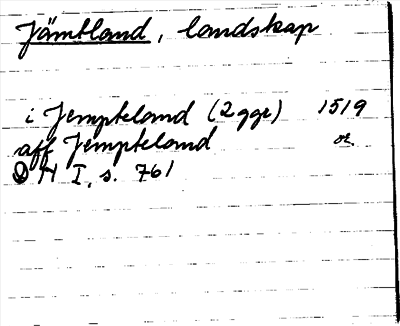 Jämtland, landskap
i Jempteland (2 ggr) 1519
aff Jempteland or.
DH I, s. 761